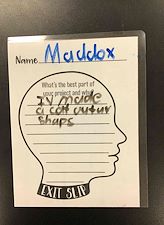 Name Maddox
What's the best part of
your project and why?
IV made
a cott outur
shaps
EXIT SLIP